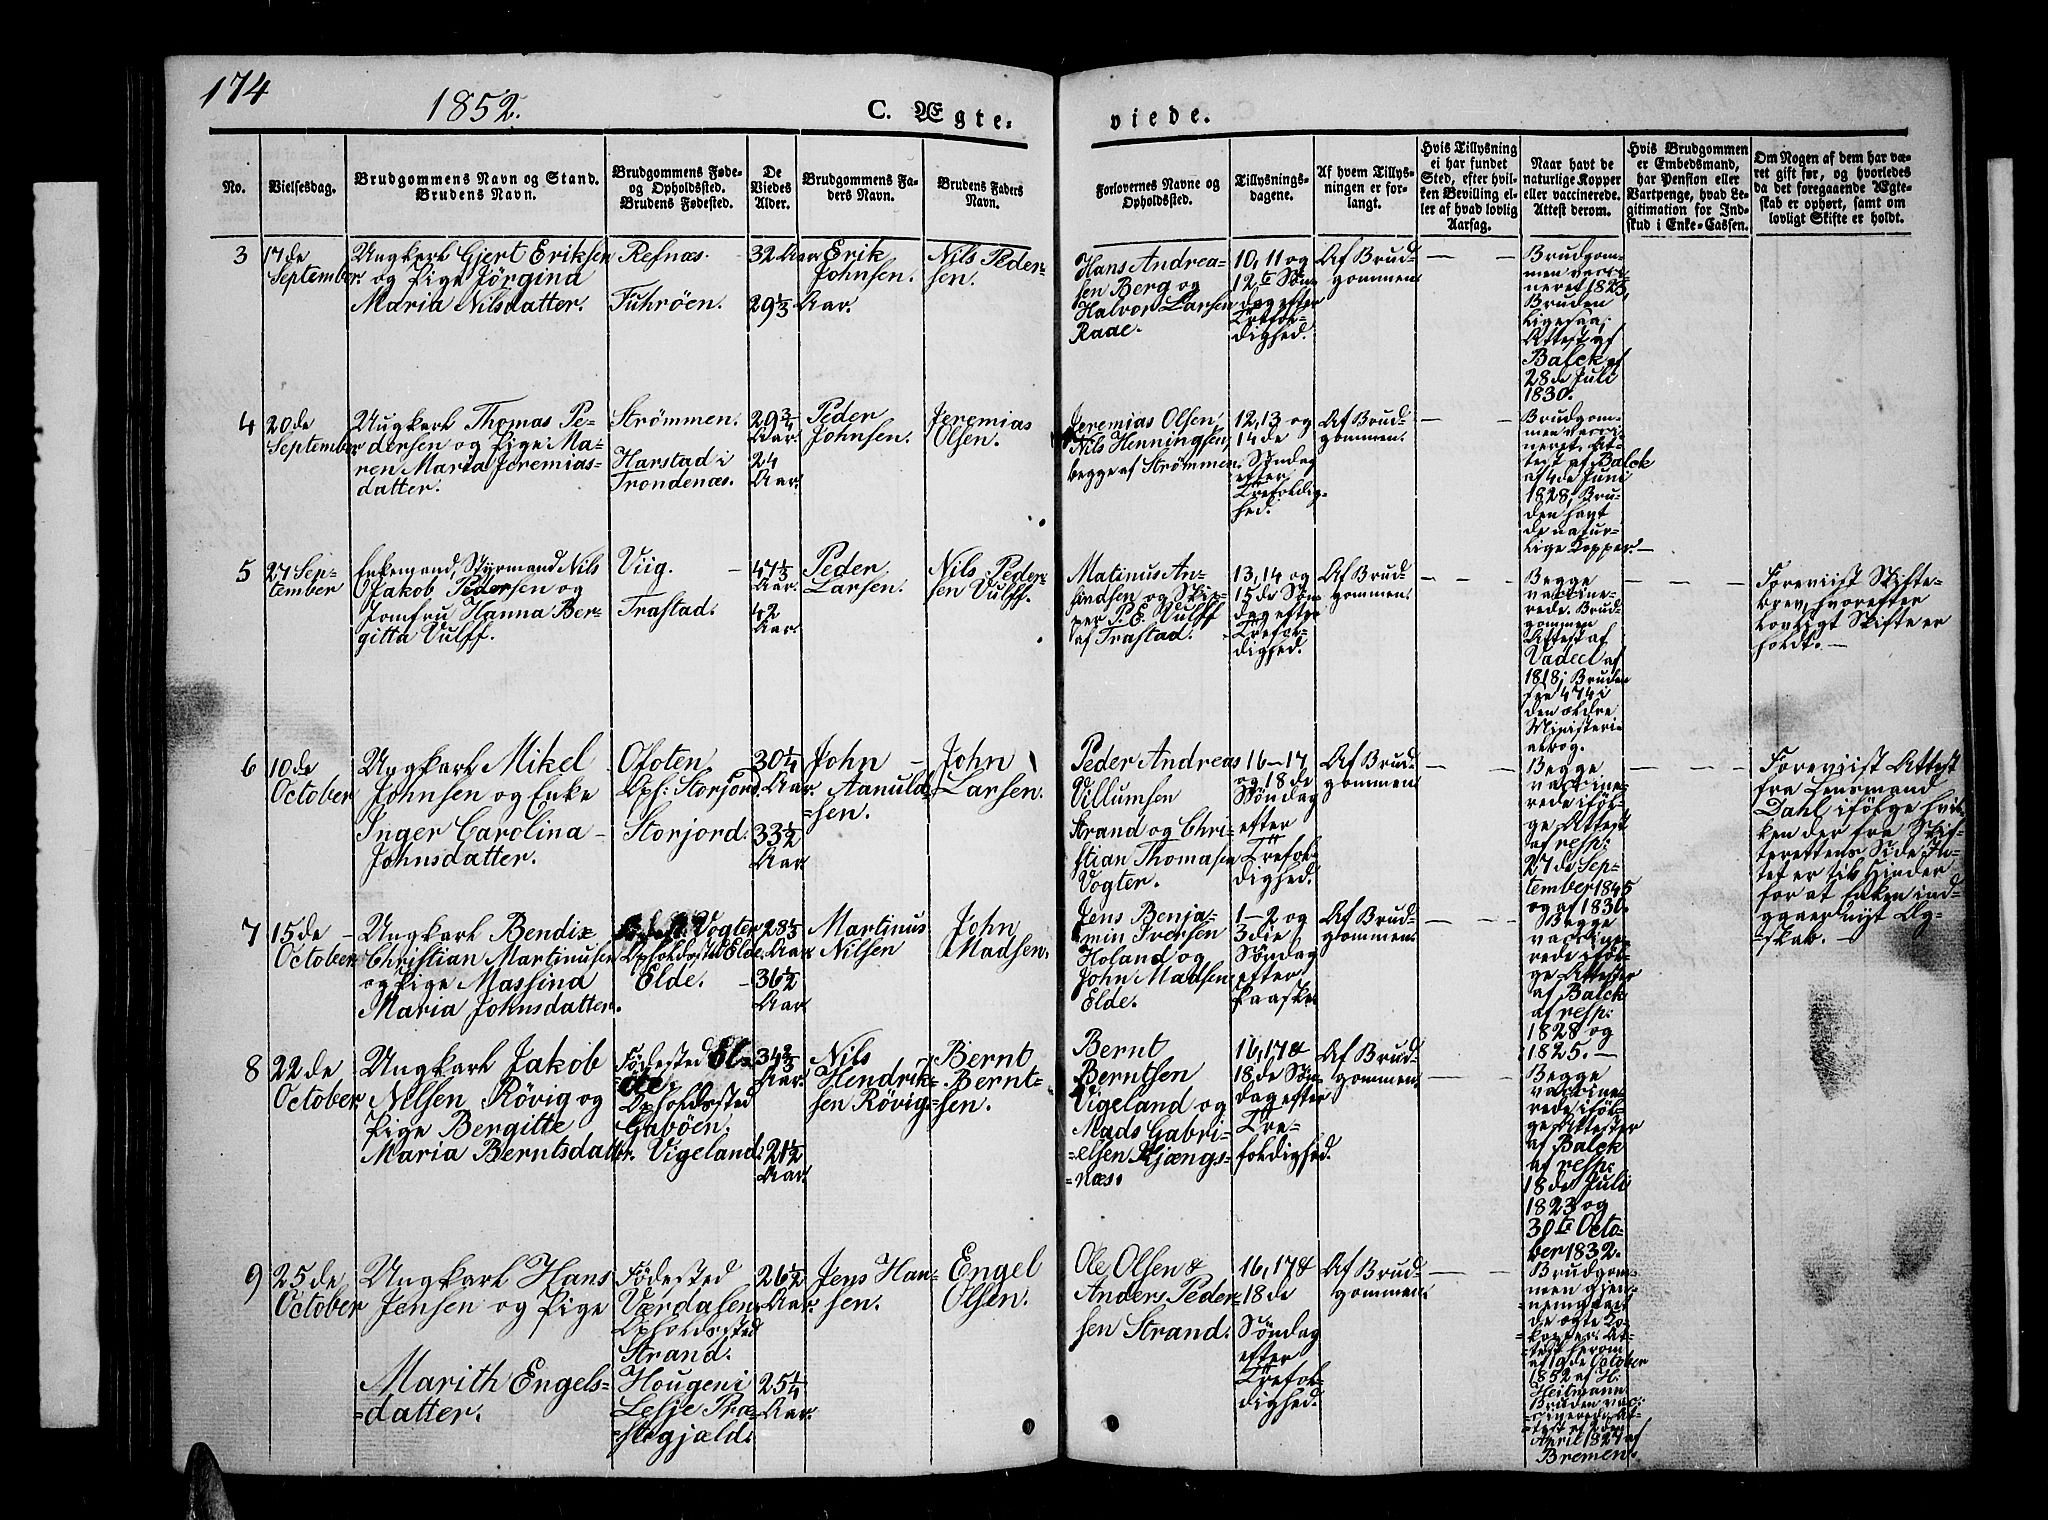 174
1852.
C. Ægte-
viede.
No.
Vielsesdag.
Brudgommens Navn og Stand.
Brudens Navn.
Brudgommens Føde-
og Opholdssted.
Brudens Fødested.
De
Viedes
Alder.
Brudgommens Fa-
ders Navn.
Brudens Faders
Navn.
Forlovernes Navne og
Opholdssted.
Tillysnings-
dagene.
Af hvem Tillys-
ningen er for-
langt.
Hvis Tillysning
ei har fundet
Sted, efter hvil-
ken Bevilling el-
ler af hvad lovlig
Aarsag.
Naar havt de
naturlige Kopper
eller vaccinerede.
Attest derom.
Hvis Brudgommen
er Embedsmand,
har Pension eller
Vartpenge, hvad Le-
gitimation for Ind-
skud i Enke-Cassen.
Om Nogen af dem har væ-
ret gift før, og hvorledes
da det foregaaende Ægte-
skab er ophørt, samt om
lovligt Skifte er holdt.
3
17de
September
Ungkarl Gjert Eriksen
og Pige Jörgina
Maria Nilsdatter.
Refnæs.
Fuhröen.
32 Aar
29 1/3 Aar.
Erik
Johnsen.
Nils Peder-
sen.
Hans Andrea-
sen Berg og
Halvor Larsen
Raae.
10, 11 og
12te Søn-
dag efter
Trefol-
dighed.
Af Brud-
gommen
Brudgom-
men vacci-
neret 1823,
Bruden
ligesaa,
Attest af
Balck af
28de Juli
1830.
4
20de
September
Ungkarl Thomas Pe-
dersen og Pige Ma-
ren Maria Jeremias-
datter.
Strömmen.
Harstad i
Trondenæs.
29 3/4
Aar.
24
Aar.
Peder
Johnsen.
Jeremias
Olsen.
Jeremias Olsen,
Nils Henningsen,
begge af Strömmen.
12, 13 og
14de
Søndag
efter
Trefoldig-
hed.
Af Brud-
gommen.
Brudgom-
men vacci-
neret, At-
test af Balck
af 4de Juni
1828, Bru-
den havt
de natur-
lige Kopper.
5
27 Sep-
tember
Enkemand, Styrmand Nils
Jakob Pedersen og
Jomfru Hanna Ber-
gitta Vulff.
Viig.
Trastad.
47 1/3
Aar.
42
Aar.
Peder
Larsen.
Nils Peder-
sen Vulff.
Matinus An-
findsen og Skip-
per P. E. Vulff
af Trastad.
13, 14 og
15de Søn-
dag efter
Trefol-
dighed.
Af Brud-
gommen.
Begge
vaccine-
rede. Brud-
gommen
Attest af
Vadeel af
1818; Bruden
474 i
den ældre
Ministeri-
albog.
Foreviist Skifte-
brev, hvorefter
lovligt Skifte er
holdt.
6
10de
October
Ungkarl Mikel
Johnsen og Enke
Inger Carolina
Johnsdatter.
Ofoten
Oph: Storjord.
Storjord.
30 1/4
Aar.
33 1/2
Aar.
John
Aanuld-
sen.
John
Larsen.
Peder Andreas
Villumsen
Strand og Chri-
stian Thomasen
Vogter.
16–17
og 18de
Søndag
efter
Trefol-
dighed.
Af Brud-
gommen
Begge
vaccine-
rede iföl-
ge Attest
af resp:
27de Sep-
tember 1845
og af 1830.
Foreviist Attest
fra Lensmand
Dahl, ifölge hvil-
ken der fra Skif-
terettens Side In-
tet er til Hinder
for at Enken ind-
gaaer nyt Æg-
skab.
7
15de
October
Ungkarl Bendix
Christian Martinusen
og Pige Massina
Maria Johnsdatter.
Vogter
Opholdssted Elde.
Elde.
28 1/3
Aar.
36 1/2
Aar.
Martinus
Nilsen
John
Madsen.
Jens Benja-
min Iversen
Holand og
John Madsen
Elde.
1–2 og
3die
Søndag
efter
Paaske
Af Brud-
gommen.
Begge
vaccine-
rede iföl-
ge Attester
af Balck
af resp:
1828 og
1825.
8
22de
October
Ungkarl Jakob
Nilsen Rövig og
Pige Bergitte
Maria Berntsdatter.
Födested El-
de
Opholdssted
Gaböen.
Vigeland.
34 2/3
Aar.
21 1/2
Aar.
Nils
Hendrik-
sen Rövig.
Bernt
Bernt-
sen.
Bernt
Berntsen
Vigeland og
Mads Gabri-
elsen Kjængs-
næs.
16, 17 &
18de Søn-
dag efter
Tre-
foldighed.
Af Brud-
gommen
Begge
vaccine-
rede iföl-
ge Attester
af Balck
af resp:
18de Juli
1823 og
30te Octo-
ber 1832.
9
25de
October
Ungkarl Hans
Jensen og Pige
Marith Engels-
datter.
Födested
Værdalsen
Opholdssted
Strand.
Hougen i
Lesje Præ-
stegjæld.
26 1/2
Aar.
25 1/4
Aar.
Jens Han-
sen.
Engel
Olsen.
Ole Olsen &
Anders Peder-
sen Strand.
16, 17 &
18de
Søndag
efter
Trefol-
dighed.
Af Brud-
gommen.
Brudgom-
men gjen-
nemgaaet
de ægte Ko-
kopper. At-
test herom
af 19de October
1852 af H.
Heitmann.
Bruden vac-
cinered. At-
test af 2den
April 1827 af
Bremen.